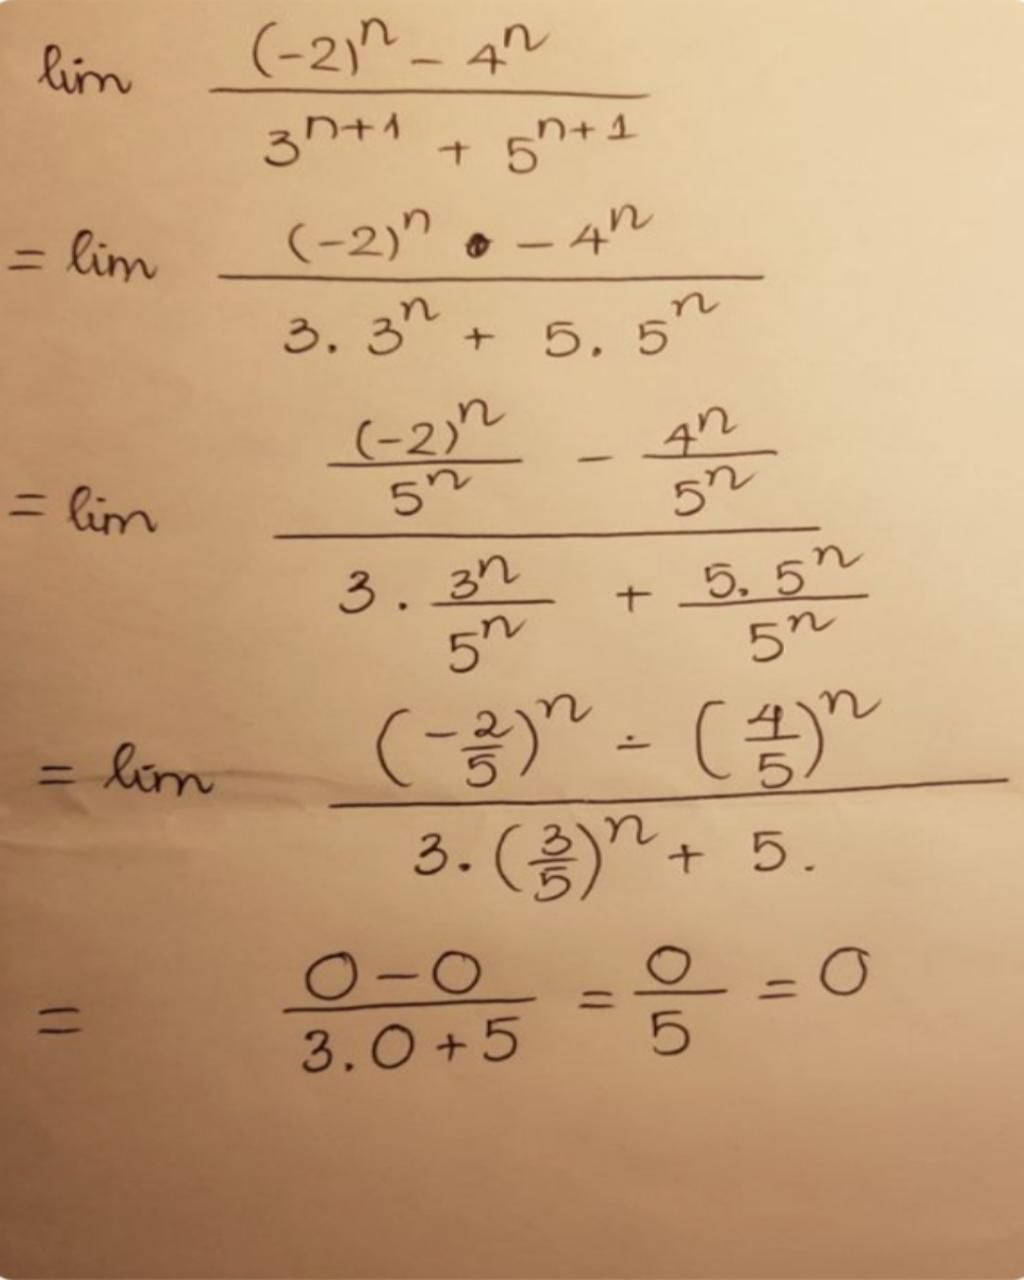 lim ((-2)^n - 4^n) / (3^(n+1) + 5^(n+1))
= lim ((-2)^n • - 4^n) / (3. 3^n + 5. 5^n)
= lim ((-2)^n / 5^n - 4^n / 5^n) / (3 . 3^n / 5^n + 5. 5^n / 5^n)
= lim ((-2/5)^n - (4/5)^n) / (3. (3/5)^n + 5.)
= (0 - 0) / (3.0 + 5) = 0 / 5 = 0